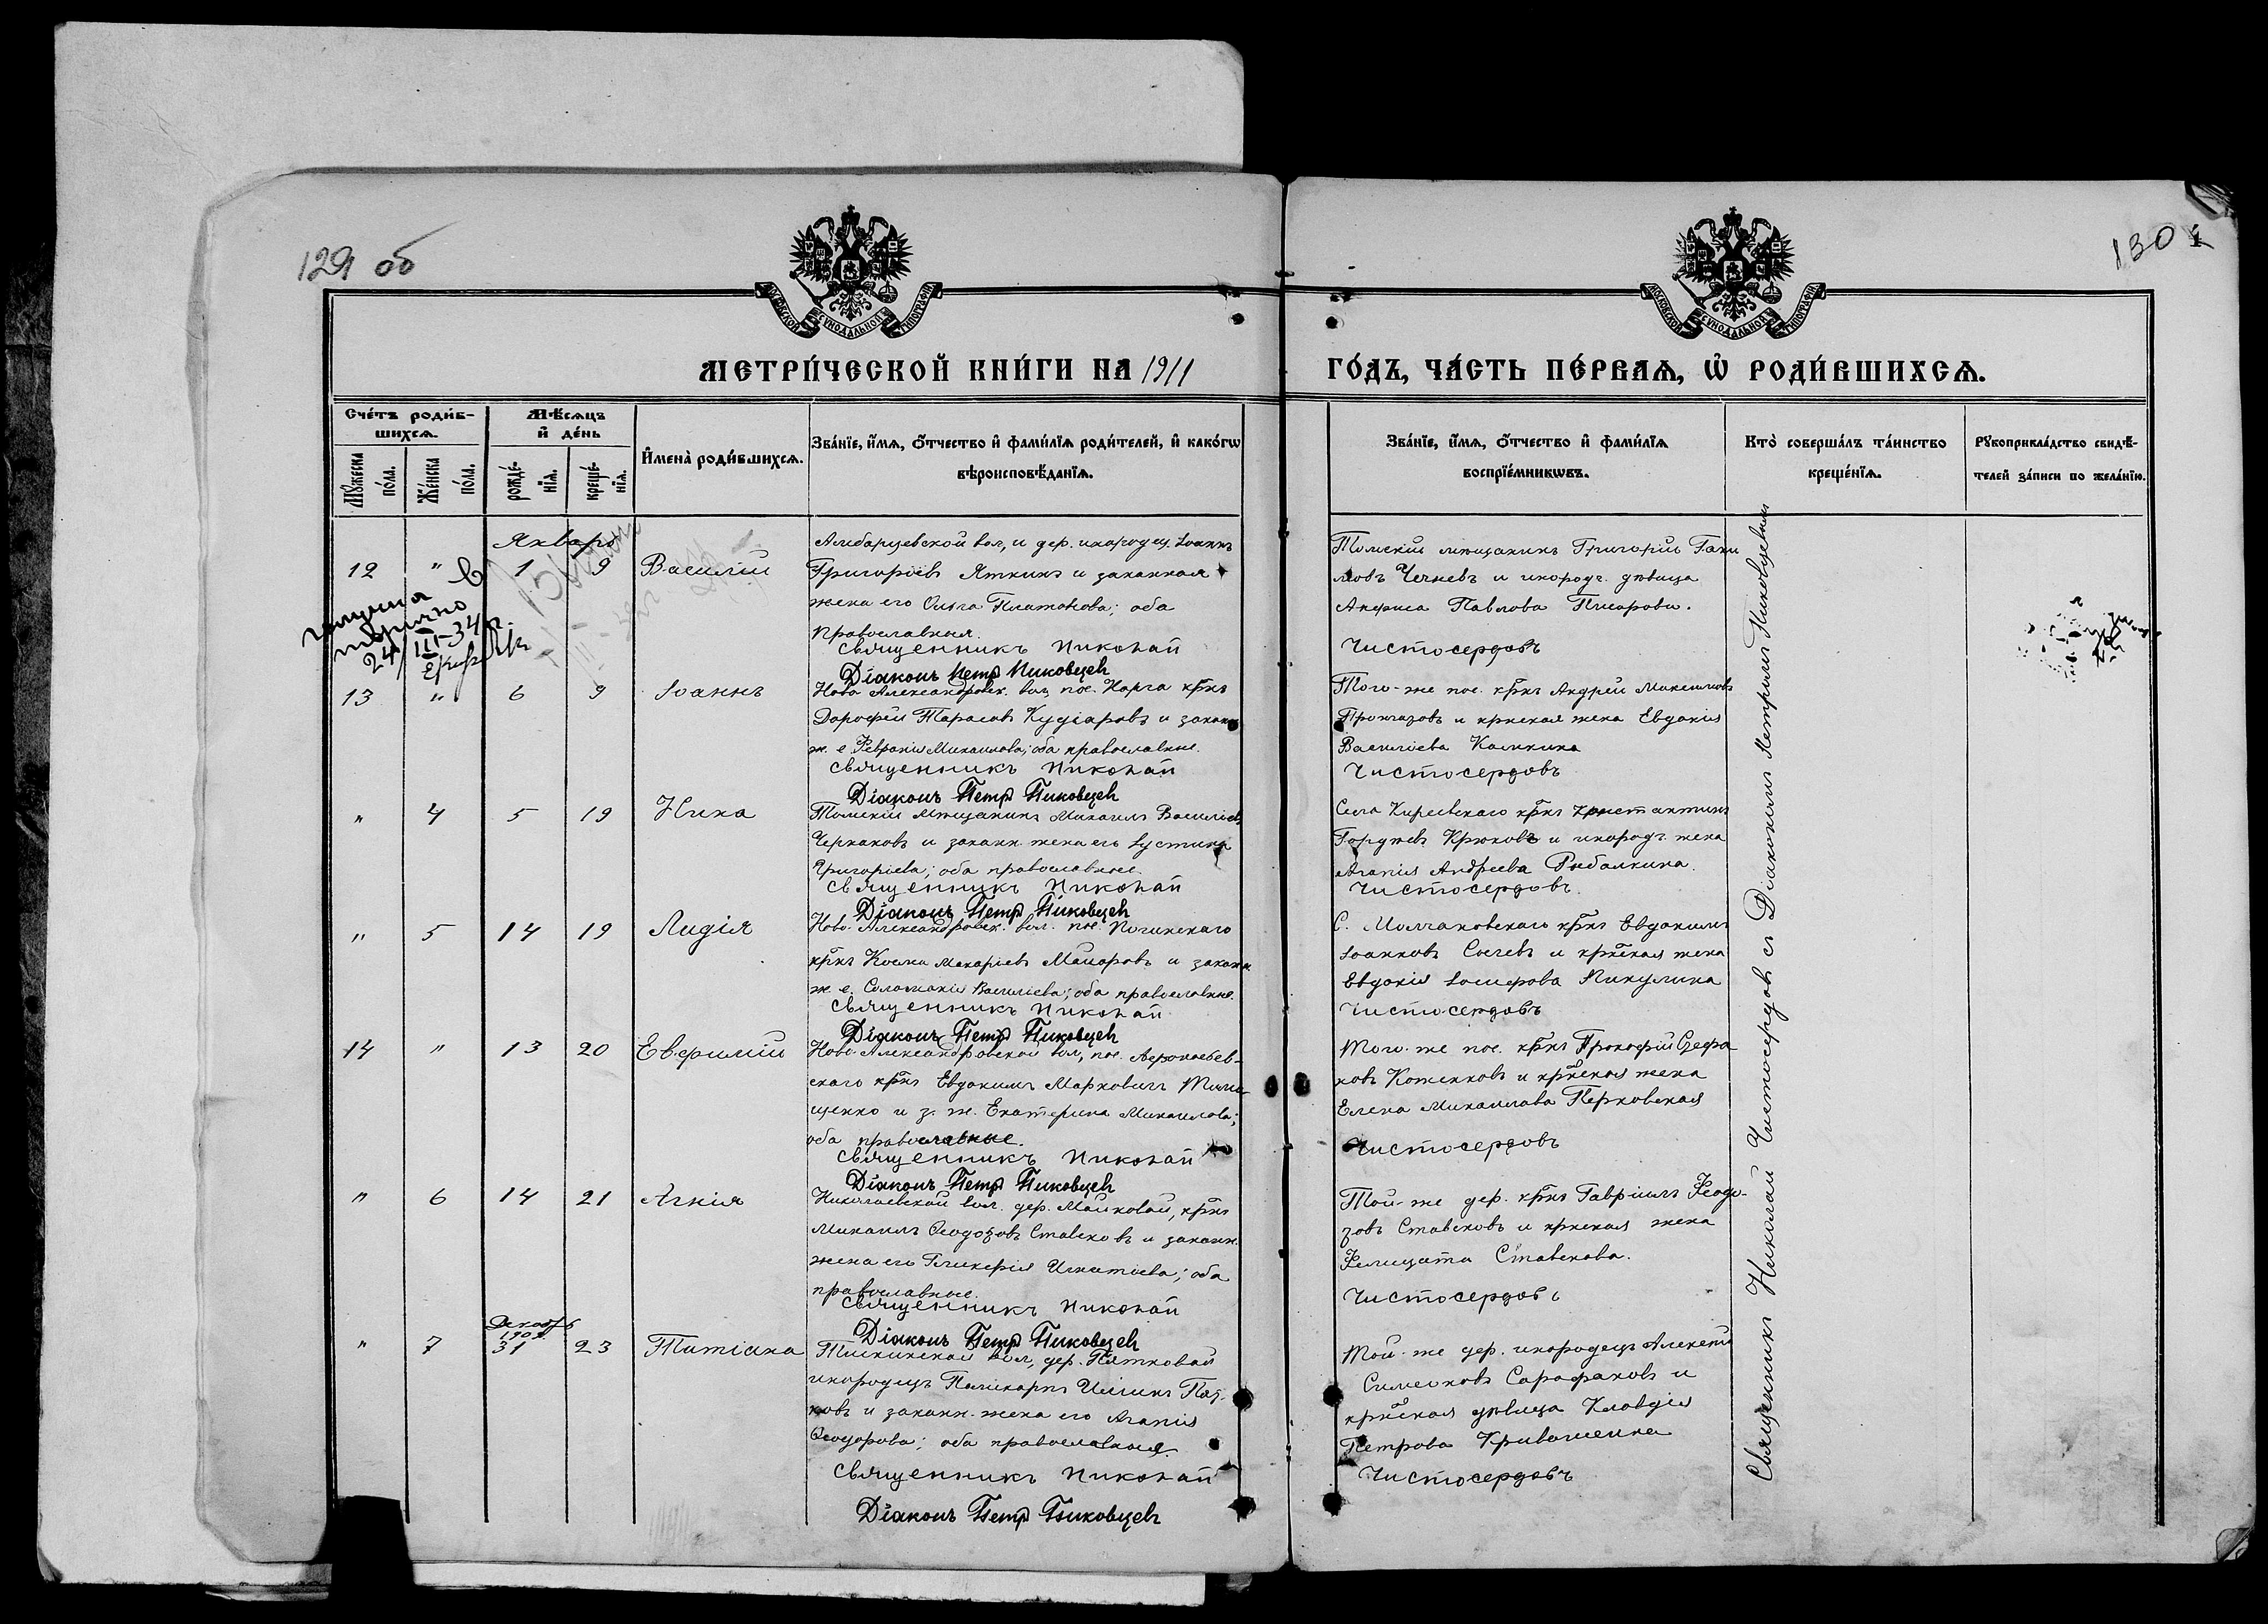 129 об
130
МЕТРИ́ЧЕСКОЙ КНИ́ГИ НА 1911
ГО́ДЪ, ЧА́СТЬ ПЕ́РВАѦ, Ѡ҆ РОДИ́ВШИХСѦ.
Сче́тъ роди́в-
шихсѧ.
Мꙋ́жеска по́ла.
Же́нска по́ла.
Мѣ́сѧцъ
и҆ де́нь
рожде́-
нїѧ.
креще́-
нїѧ.
И҆мена̀ роди́вшихсѧ.
Зва́нїе, и҆́мѧ, ѻ҆́тчество и҆ фами́лїѧ роди́телей, и҆ како́гѡ
вѣроисповѣ́данїѧ.
Зва́нїе, и҆́мѧ, ѻ҆́тчество и҆ фами́лїѧ
воспрїе́мникѡвъ.
Кто̀ соверша́лъ та́инство
креще́нїѧ.
Рꙋкоприкла́дство свидѣ́-
телей за́писи по жела́нїю.
Январь
12 " 1 9 Василій
вол, и дер. инородец Іоаннъ
Григоріевъ Яткинъ и законная
жена его Ольга Платонова; оба
православныя.
Священникъ Николай
Діаконъ Петръ Пиковцев
Томскій мѣщанинъ Григорій
Черневъ и инородч. дѣвица
Анфиса Павлова Писарова.
Чистосердовъ
24/III-34 г.
13 " 6 9 Іоаннъ
Ново Александровск. вол, пос. Карга крнъ
Дорофей Тарасовъ Кудіаровъ и законн
ж. е. Февронія Михаилова; оба православные.
Священникъ Николай
Діаконъ Петръ Пиковцев
Того-же пос. крнъ Андрей Максимовъ
и крнская жена Евдокія
Василіева Калинина
Чистосердовъ
" 4 5 19 Нина
Томскій мѣщанинъ Михаилъ Василіевъ
Черкаковъ и законн. жена его Іустина
Григоріева; оба православные.
Священникъ Николай
Діаконъ Петръ Пиковцев
Села Киреевскаго крнъ Константинъ
Крюковъ и инородч. жена
Агапія Андреева Рыбалкина.
Чистосердовъ.
" 5 14 19 Лидія
Ново-Александровск. вол. пос.
крнъ Косма Макаріевъ Маіоровъ и законн
ж. е. Соломонія Василіева; оба православные.
Священникъ Николай
Діаконъ Петръ Пиковцев
С. Молчановскаго крнъ Евдокимъ
Іоанновъ Сычевъ и крнская жена
Евдокія Іосифова Пикулина
Чистосердовъ
14 " 13 20 Евфимій
Ново-Александровской вол, пос.
скаго крнъ Евдокимъ Марковичъ Тима-
щенко и з. ж. Екатерина Михаилова;
оба православные.
Священникъ Николай
Діаконъ Петръ Пиковцев
Того-же пос. крнъ Прокофій Стефа-
новъ Коженковъ и крнская жена
Елена Михаилова Перковская
Чистосердовъ
" 6 14 21 Агнія
Николаевской вол. дер. Майковой, крнъ
Михаилъ Ѳеодозовъ Ставсковъ и законн.
жена его Гликерія Игнатіева; оба
православные.
Священникъ Николай
Діаконъ Петръ Пиковцев
Той-же дер. крнъ Гавріилъ Феодо-
зовъ Ставсковъ и крнская жена
Фелицата Ставскова.
Чистосердовъ
Декабрь
" 7 31 23 Татіана
вол, дер. Пятковой
инородецъ Поликарпъ Иліинъ Пят-
ковъ и законн. жена его Агапія
Ѳеодорова; оба православныя.
Священникъ Николай
Діаконъ Петръ Пиковцев
Той-же дер. инородецъ Алексій
Симеоновъ Сарафановъ и
крнская дѣвица Клавдія
Петрова Кривошеина
Чистосердовъ
Священникъ Николай Чистосердовъ съ Діакономъ Петромъ Пиковцевымъ